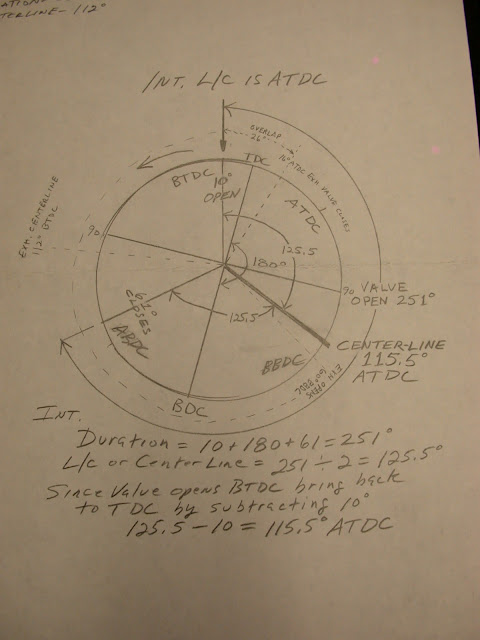 TERLINE - 112°
INT. L/C IS ATDC
OVERLAP
26°
TDC
16° ATDC EXH VALVE CLOSES
BTDC
10°
OPEN
ATDC
EXH. CENTERLINE
112° BTDC
90
125.5
180°
90 VALVE
OPEN 251°
61°
CLOSES
ABDC
125.5
CENTER-LINE
115.5°
ATDC
BBDC
EXH OPENS
60° BBDC
BDC
INT.
Duration = 10 + 180 + 61 = 251°
L/C or Center Line = 251 ÷ 2 = 125.5°
Since Valve opens BTDC bring back
to TDC by subtracting 10°
125.5 - 10 = 115.5° ATDC